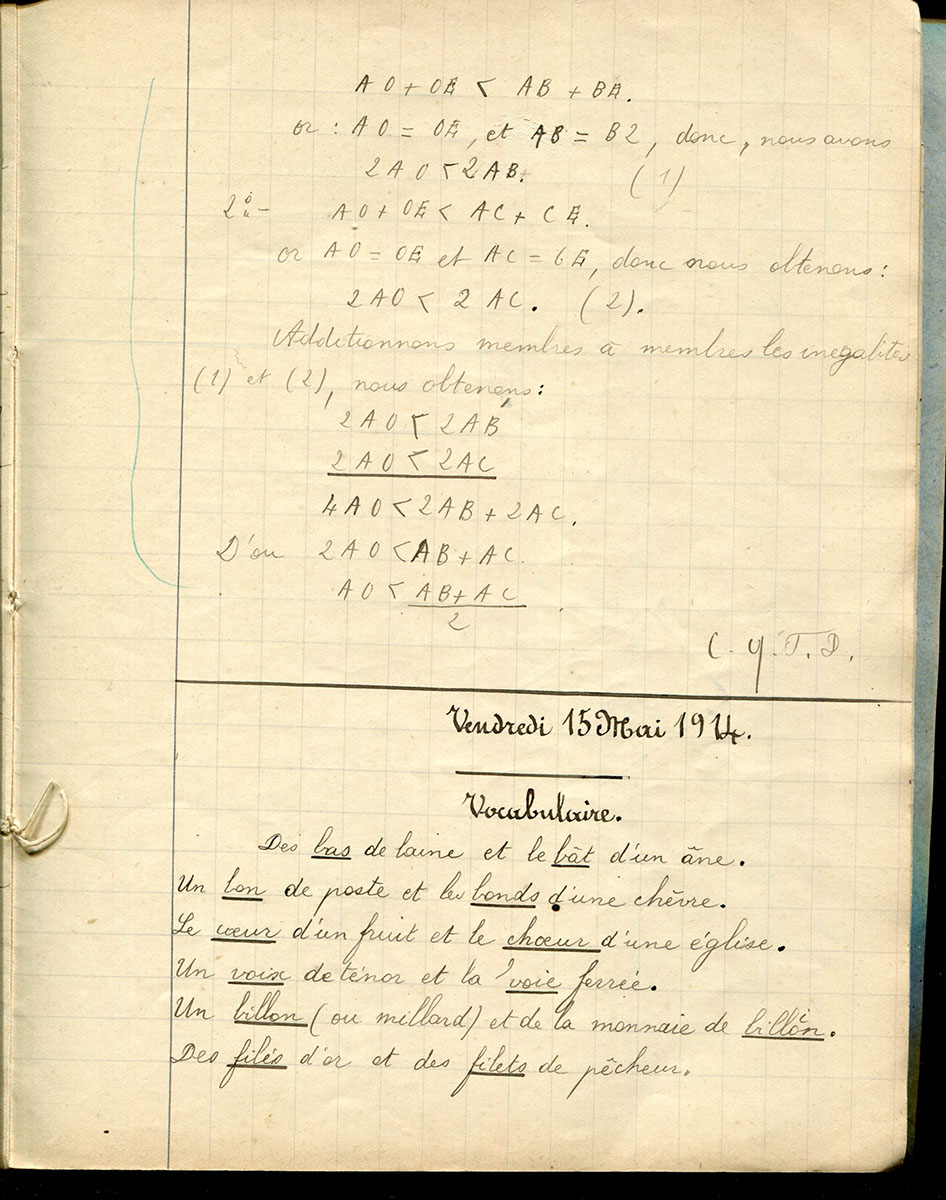 AO + OE < AB + BE.
or : AO = OE, et AB = B2, donc, nous avons
2AO < 2AB. (1)
2° - AO + OE < AC + CE.
or AO = OE et AC = CE, donc nous obtenons :
2AO < 2AC. (2).
Additionnons membres à membres les inegalites
(1) et (2), nous obtenons :
2AO < 2AB
2AO < 2AC
4AO < 2AB + 2AC.
D'ou 2AO < AB + AC.
AO < AB + AC
2
C.q.T.D.
Vendredi 15 Mai 1914.
Vocabulaire.
Des bas de laine et le bât d'un âne.
Un bon de poste et les bonds d'une chèvre.
Le cœur d'un fruit et le chœur d'une église.
Un voix de ténor et la voie ferrée.
Un billon (ou millard) et de la monnaie de billon.
Des filés d'or et des filets de pêcheur.